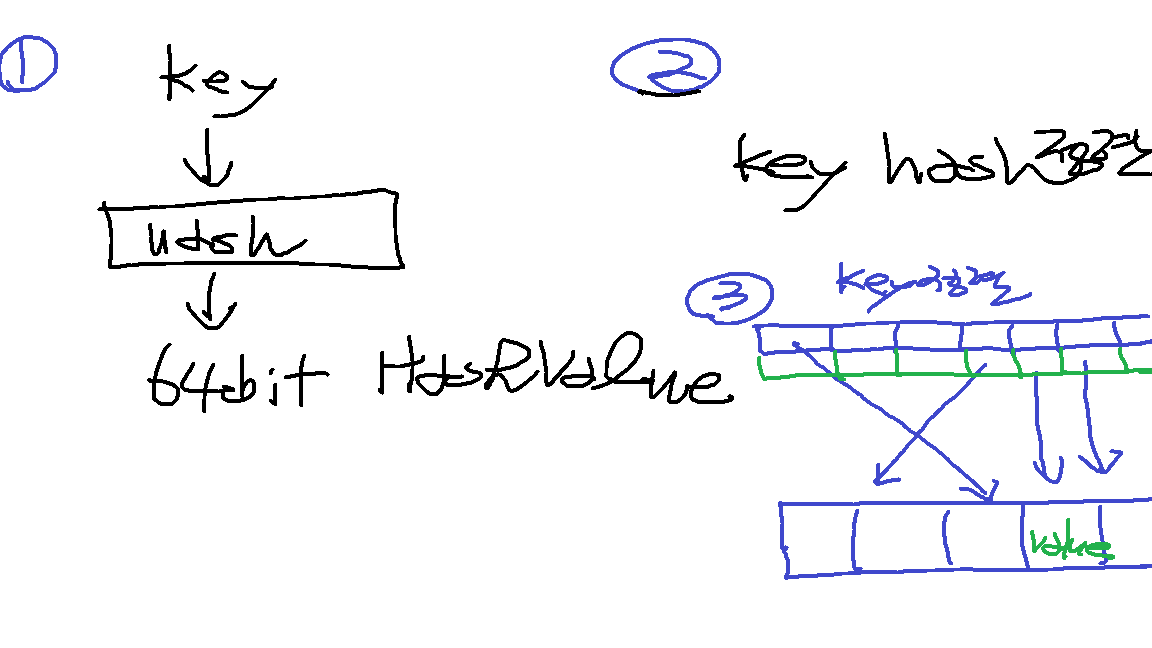 ①
key
hash
64bit HashValue
②
key hash
③
key
value